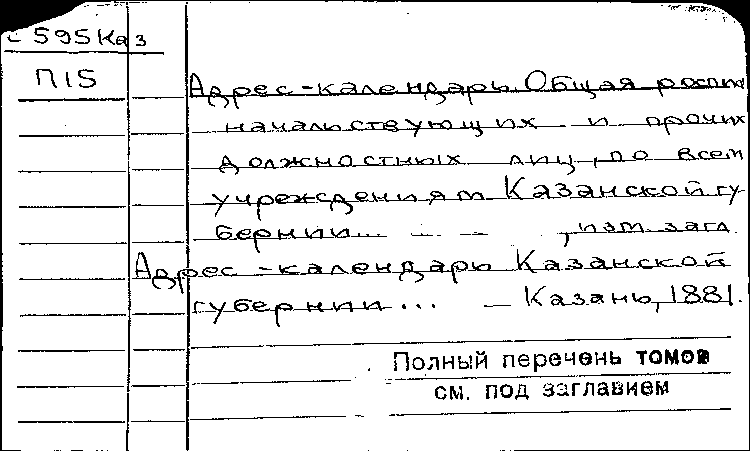 с 595Каз
П15
Адрес-календарь. Общая роспись
начальствующих и прочих
должностных лиц, по всем
учреждениям Казанской гу-
бернии... — — , изм. загл.
Адрес-календарь Казанской
губернии... — Казань, 1881.
Полный перечень томов
см. под заглавием